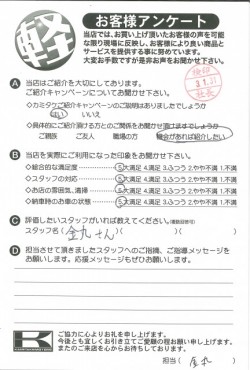 軽
お客様アンケート
当店では、お買い上げ頂いたお客様の声を可能
な限り現場に反映し、お客様により良い商品と
サービスを提供する事に努めています。
大変お手数ですが是非お声をお聞かせ下さい。
A 当店はご紹介を大切にしております。
ご紹介キャンペーンについてお聞かせ下さい。
◇カミタケご紹介キャンペーンのご説明はありましたでしょうか
はい いいえ
◇具体的にご紹介頂ける方とのご関係をお聞かせ頂けますでしょうか
ご親族 ご友人 職場の方 機会があれば紹介したい
B 当店を実際にご利用になった印象をお聞かせ下さい。
◇総合的な満足度 5.大満足 4.満足 3.ふつう 2.やや不満 1.不満
◇スタッフの対応 5.大満足 4.満足 3.ふつう 2.やや不満 1.不満
◇お店の雰囲気、清掃 5.大満足 4.満足 3.ふつう 2.やや不満 1.不満
◇納車時のお車の状態 5.大満足 4.満足 3.ふつう 2.やや不満 1.不満
C 評価したいスタッフがいれば教えてください。(複数回答可)
スタッフ名( 金丸さん )( )
D 担当させて頂きましたスタッフへのご指摘、ご指導メッセージを
お願いします。応援メッセージもぜひお願いします。
K
ご協力に心よりお礼を申し上げます。
今後とも宜しくお引き立てご愛顧の程お願い申し上げます。
またのご来店を心からお待ちしております。
担当( 金丸 )